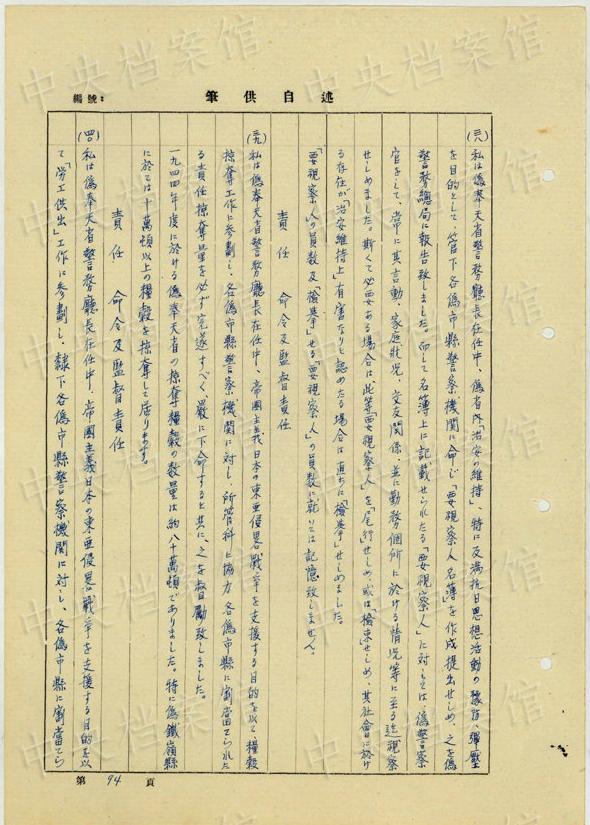 述自供筆
編號：
(三八)私は偽奉天省警務廳長在任中、偽省内「治安の維持」、特に反満抗日思想活動の豫防、彈壓
を目的として、管下各偽市縣警察機関に命じ「要視察人名簿」を作成提出せしめ、之を偽
警務總局に報告致しました。而して名簿上に記載せられたる「要視察人」に対しては、偽警察
官をして、常に其言動、家庭狀況、交友関係、並に勤務個所に於ける情況等に至る迄視察
せしめました。斯くて必要ある場合は、此等「要視察人」を「尾行」せしめ、或は「檢束」せしめ、其社會に於け
る存在が「治安維持上」有害なりと認めたる場合は直ちに「檢挙」せしめました。
「要視察人」の員数及「檢挙」せる「要視察人」の員数に就いては記憶致しません。
責任 命令及監督責任
(三九)私は偽奉天省警務廳長在任中、帝國主義日本の東亜侵畧戰爭を支援する目的を以て、糧穀
掠奪工作に参劃し、各偽市縣警察機関に対し、所管科と協力 各偽市縣に割當てられた
る責任掠奪量を必ず完遂すべく嚴に下命すると共に、之を督勵致しました。
一九四四年度に於ける偽奉天省の掠奪糧穀の数量は約八十萬頓でありました。特に偽鐵嶺縣
に於ては十萬頓以上の糧穀を掠奪して居ります。
責任 命令及監督責任
(四〇)私は偽奉天省警務廳長在任中、帝國主義日本の東亜侵畧戰爭を支援する目的を以
て「労工供出」工作に参劃し、隷下各偽市縣警察機関に対し、各偽市縣に割當てら
第 94 頁
中央档案馆
中央档案馆
中央档案馆
中央档案馆
中央档案馆
中央档案馆
中央档案馆
中央档案馆